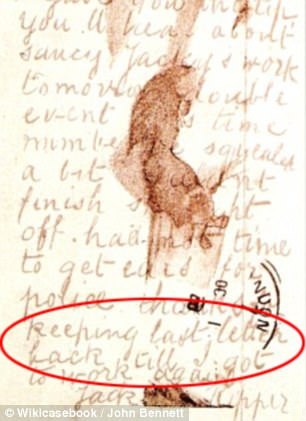 you'll hear about
saucy Jacky's work
tomorrow double
event this time
number one squealed
a bit couldn't
finish straight
off. had not time
to get ears for
police thanks for
keeping last letter
back till I got
to work again
Jack Ripper
© Wikicasebook / John Bennett